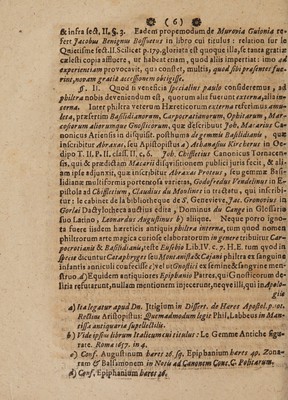 (6)
& infra sect. II. §. 3. Eadem propemodum de Murenia Guionia re-
fert Jacobus Benignus Bossuetus in libro cui titulus: relation sur le
Quietisme sect. II. Scilicet p. 179. gloriata est quoque illa, se tanta gratiæ
cælestis copia afflueré, ut habeat etiam, quod aliis impertiat: imo ad
experientiam provocavit, qui constet, multis, quod sibi præsentes fue-
rint, novam gratiæ accessionem obtigisse.
§. II. Quod si veneficia specialius paulo consideremus, ad
philtra nobis deveniendum est, quorum alia fuerunt externa, alia in-
terna. Inter philtra veterum Hæreticorum externa referimus amu-
leta, præsertim Basilidianorum, Carpocratianorum, Ophitarum, Mar-
cosiorum aliorumque Gnosticorum, quæ describunt Joh. Macarius Ca-
nonicus Ariensis in disquisit. posthuma de gemmis Basilidianis, quæ
inscribitur Abraxas, seu Apistopistus a) Athanasius Kircherus in Oe-
dipo T. II. P. II. class. II. c. 6. Joh. Chiffletius Canonicus Tornacen-
sis, qui, & prædictam Macarii disquisitionem publici juris fecit, & ali-
am ipse adjunxit, quæ inscribitur Abraxas Proteus, seu gemmæ Basi-
lidianæ multiformis portentosa varietas, Godefredus Vendelinus in E-
pistola ad Chiffletium, Claudius du Molinet in tractatu, qui inscribi-
tur: le cabinet de la bibliotheque de S. Genevieve, Jac. Gronovius in
Gorlæi Dactylotheca auctius edita, Dominus du Cange in Glossario
suo Latino, Leonardus Augustinus b) aliique. Neque porro igno-
ta fuere iisdem hæreticis antiquis philtra interna, tum quod nomen
philtrorum arte magica cunctæ elaboratorum in genere tribuitur Car-
pocratianis & Basilidianis, teste Eusebio Lib. IV. c. 7. H. E. tum quod in
specie dicuntur Cataphryges seu Montanistæ & Cajani philtra ex sanguine
infantis aniculis confecisse c) vel ut Gnostici ex semine & sanguine men-
struo d) Equidem antiquiores Epiphanio Patres, qui Gnosticorum de-
liria refutarunt, nullam mentionem injecerunt, neque illi, qui in Apolo-
giis
a) Ita legatur apud Dn. Ittigium in Dissert. de Hæres Apostol. p. 101.
Rectius Aristopistus: Quemadmodum legit Phil. Labbeus in Man-
tissa antiquaria supellectilis.
b) Vide ipsius librum Italicum cui titulus: Le Gemme Antiche figu-
rate. Roma 1657. in 4.
c) Conf. Augustinum hæres 26. sq. Epiphanium hæres 49. Zona-
ram & Balsamonem in Notis ad Canonem Conc. C. Politarum.
d) Conf. Epiphanium hæres 26.